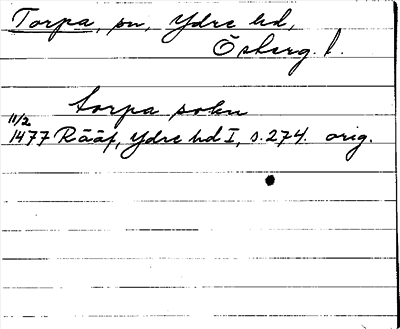 Torpa, sn, Ydre hd,
Ösberg. l.
torpa sokn
11/2
1477 Rääf, Ydre hd I, s. 274. orig.